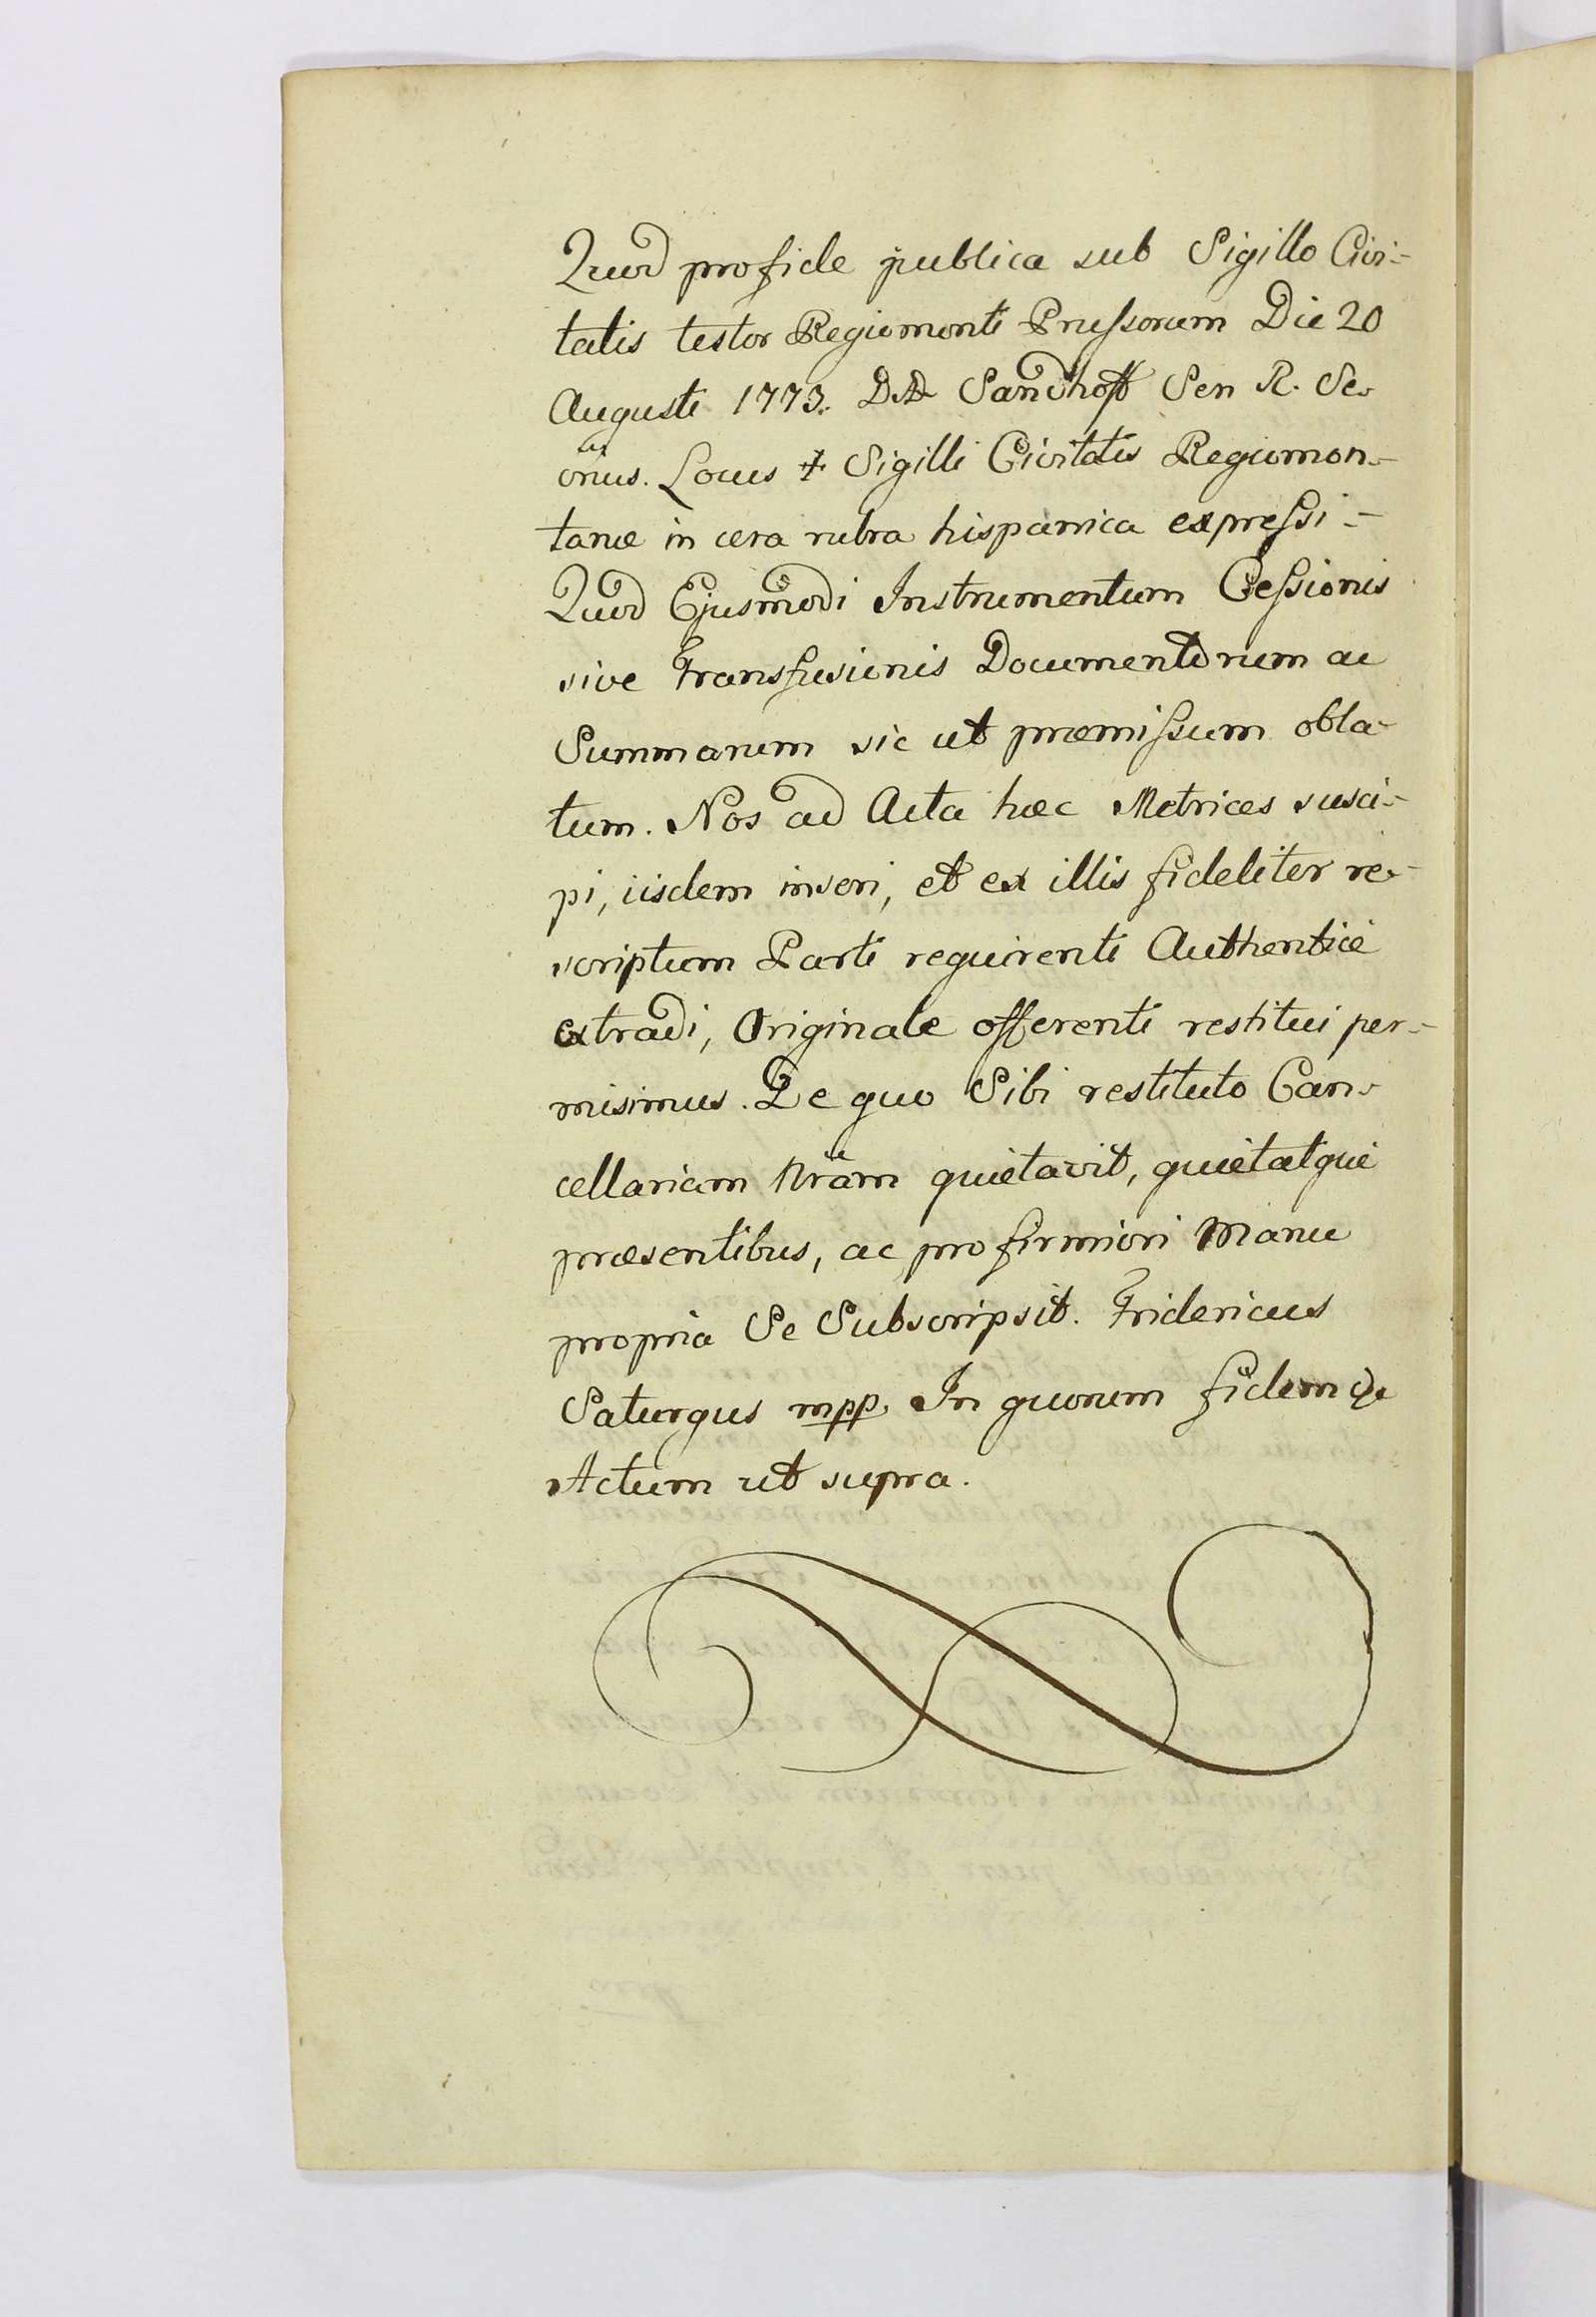 Quod pro fide publica sub Sigillo Civi-
tatis testor Regiomonti Prussorum Die 20
Augusti 1773. Sandhoff Sen R. Se-
crius. Locus ‡ Sigilli Civitatis Regiomon-
tanæ in cera rubra hispanica expressi -
Quod Ejusmodi Instrumentum Cessionis
sive Transfusionis Documentorum ac
Summarum sic ut præmissum obla-
tum. Nos ad Acta hæc Metrices susci-
pi, iisdem inseri, et ex illis fideliter re-
scriptum Parti requirenti Authenticè
extradi, Originale offerenti restitui per-
misimus. De quo Sibi restituto Can-
cellariam Nram quietavit, quietatque
præsentibus, ac pro firmiori Manu
propria Se Subscripsit. Fridericus
Saturgus mpp. In quorum fidem &
Actum ut supra.